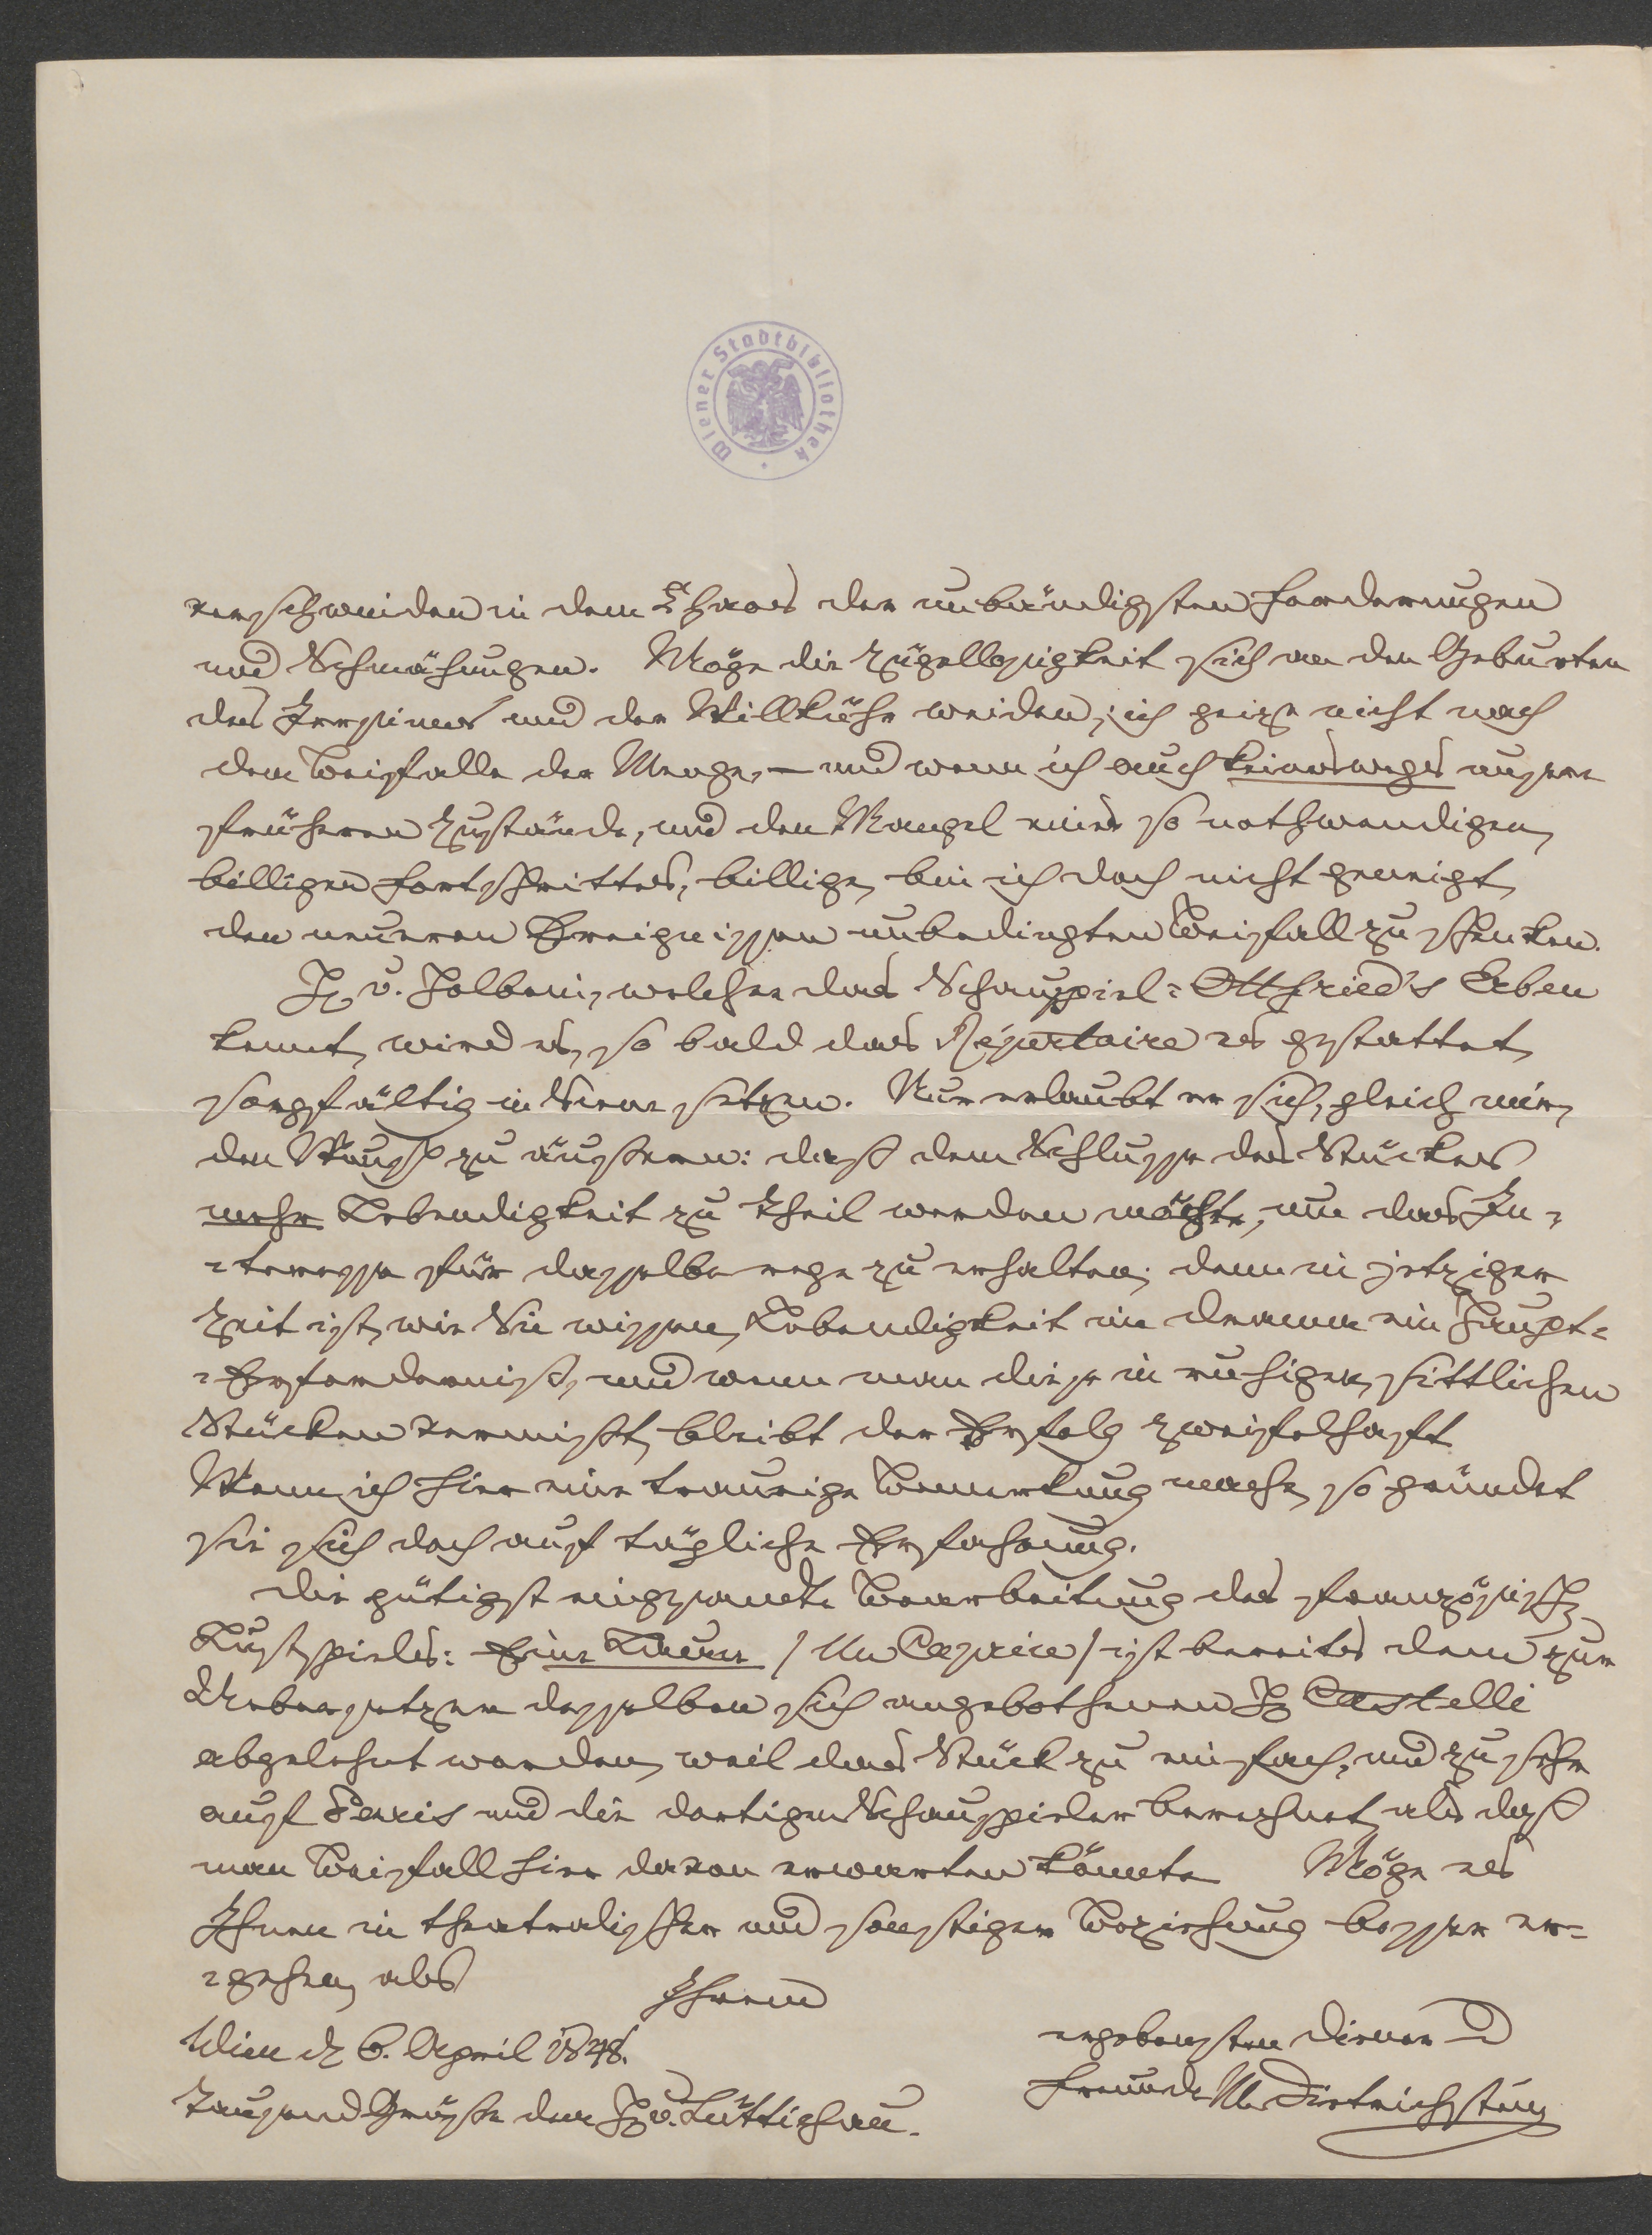 Wiener Stadtbibliothek
verschwinden in dem Chaos der unbändigsten Forderungen
und Schmähungen. Möge die Zügellosigkeit sich an den Geburten
des Irrsinns und der Willkühr weiden; ich geize nicht nach
dem Beifalle der Menge, – und wenn ich auch keineswegs unsere
früheren Zustände, und den Mangel eines so nothwendigen,
billigen Fortschrittes, billige, bin ich doch nicht geneigt,
den neueren Ereignissen unbedingten Beifall zu schenken.
H. v. Holbein, welcher das Schauspiel: Ottfried's Erben
kennt, wird es, so bald das Répertoire es gestattet,
sorgfältig in Scene setzen. Nur erlaubt er sich, gleich mir,
den Wunsch zu äußern: daß dem Schlusse des Stückes
mehr Lebendigkeit zu Theil werden möchte, um das In-
-teresse für dasselbe rege zu erhalten; denn in jetziger
Zeit ist, wie Sie wissen, Lebendigkeit im Drama ein Haupt-
-Erforderniß, und wenn man diese in ruhigen, sittlichen
Stücken vermißt, bleibt der Erfolg zweifelhaft.
Wenn ich hier eine traurige Bemerkung mache, so gründet
sie sich doch auf tägliche Erfahrung.
Die gütigst eingesandte Bearbeitung des französisch
Lustspieles: Eine Laune / Un Caprice / ist bereits dem zur
Uebersetzer desselben sich angebothenen H Castelli
abgelehnt worden, weil das Stück zu einfach, und zu sehr
auf Paris und die dortigen Schauspieler berechnet, als daß
man Beifall hier davon erwarten könnte. Möge es
Ihnen in theatralischer und sonstiger Beziehung besser er-
-gehen, als
Ihrem
Wien d 6. April 1848.
ergebensten Diener u
Freunde M Dietrichstein
Tausend Grüße dem H v. Lüttichau.